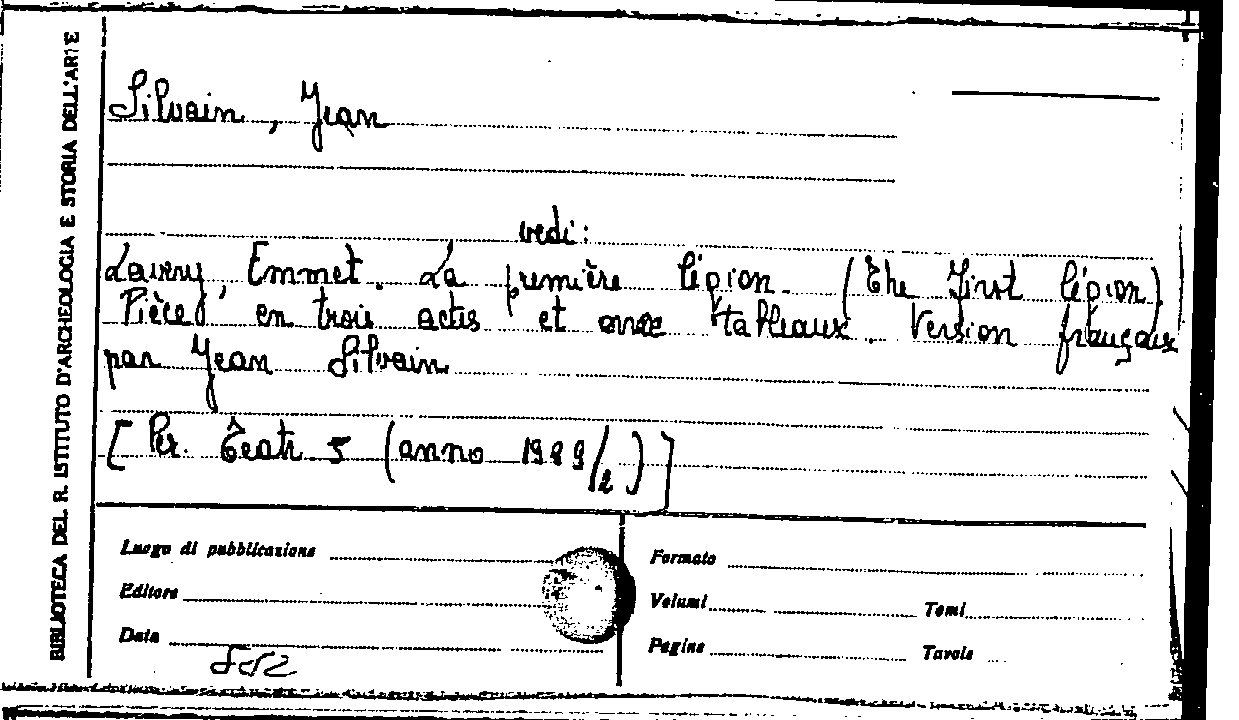 BIBLIOTECA DEL R. ISTITUTO D'ARCHEOLOGIA E STORIA DELL'ARTE
Silvain, Jean
vedi:
Lavery, Emmet. La première légion. (The First légion)
Pièce en trois actes et onze tableaux. Version française
par Jean Silvain
[Per. Teatr. 5 (anno 1939/2)]
Luogo di pubblicazione
Editore
Data
Formato
Volumi Tomi
Pagine Tavole